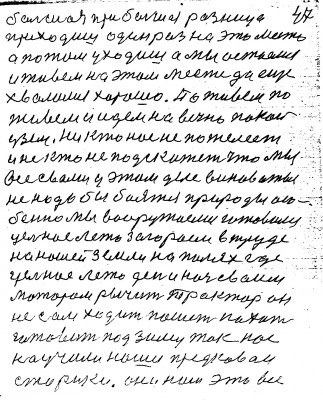 47
большая при большая разница
приходиш один раз на это место
а потом уходиш а мы остаемся
и живем на этом месте да еще
хвалимся хорошо. Поживем по
живем и идем на вечный покой
узем. Никто нас не пожелеет
и не кто не подскажет что мы
все сваими у этом деле виноваты
не надо бы боятся природы осо-
бенно мы вооружаемся готовимся
целае лето загораем в труде
на нашей земли на полях где
целае лето ден и ноч сваим
мотором рычит трактор он
не сам ходит пашет пахот
готовит под зиму так нас
научили наши предковаи
старики. они нам это все